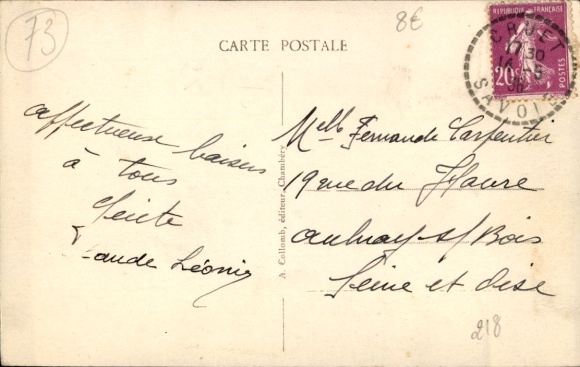 73
8€
CARTE POSTALE
RÉPUBLIQUE FRANÇAISE
20c
POSTES
CRUET
17 30
14 - 5
36
SAVOIE
affectueux baisers
à tous
Léonie
A. Collomb, éditeur, Chambéry
Melle Fernande Carpentier
19 rue du Havre
aulnay s/ Bois
Seine et Oise
218